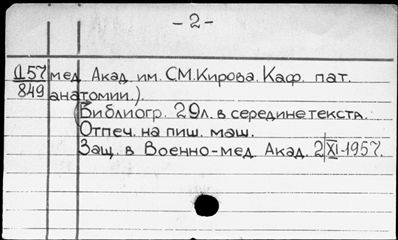 - 2 -
Д57 мед. Акад. им. С.М.Кирова. Каф. пат.
849 анатомии.).
(Библиогр. 29л. в середине текста.
Отпеч. на пиш. маш.
Защ. в Военно-мед. Акад. 2/XI-1957.